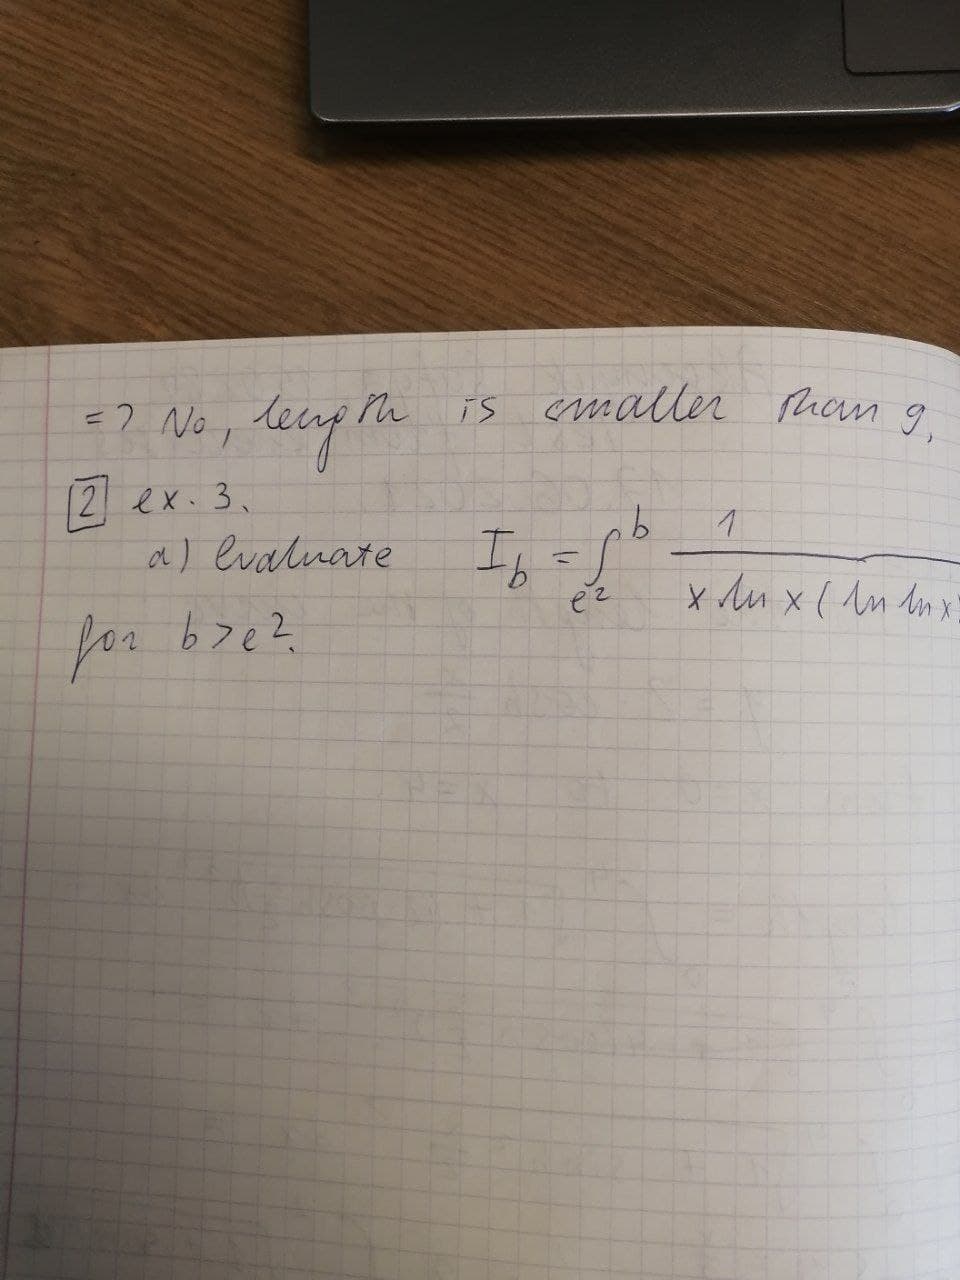 => No, length is smaller than 9,
2 ex. 3.
a) Evaluate I_b = ∫_{e^2}^{b} 1 / x ln x ( ln ln x)
for b > e².